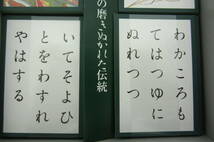 わかころも
てはつゆに
ぬれつつ
の磨きぬかれた伝統
いてそよひ
とをわすれ
やはする